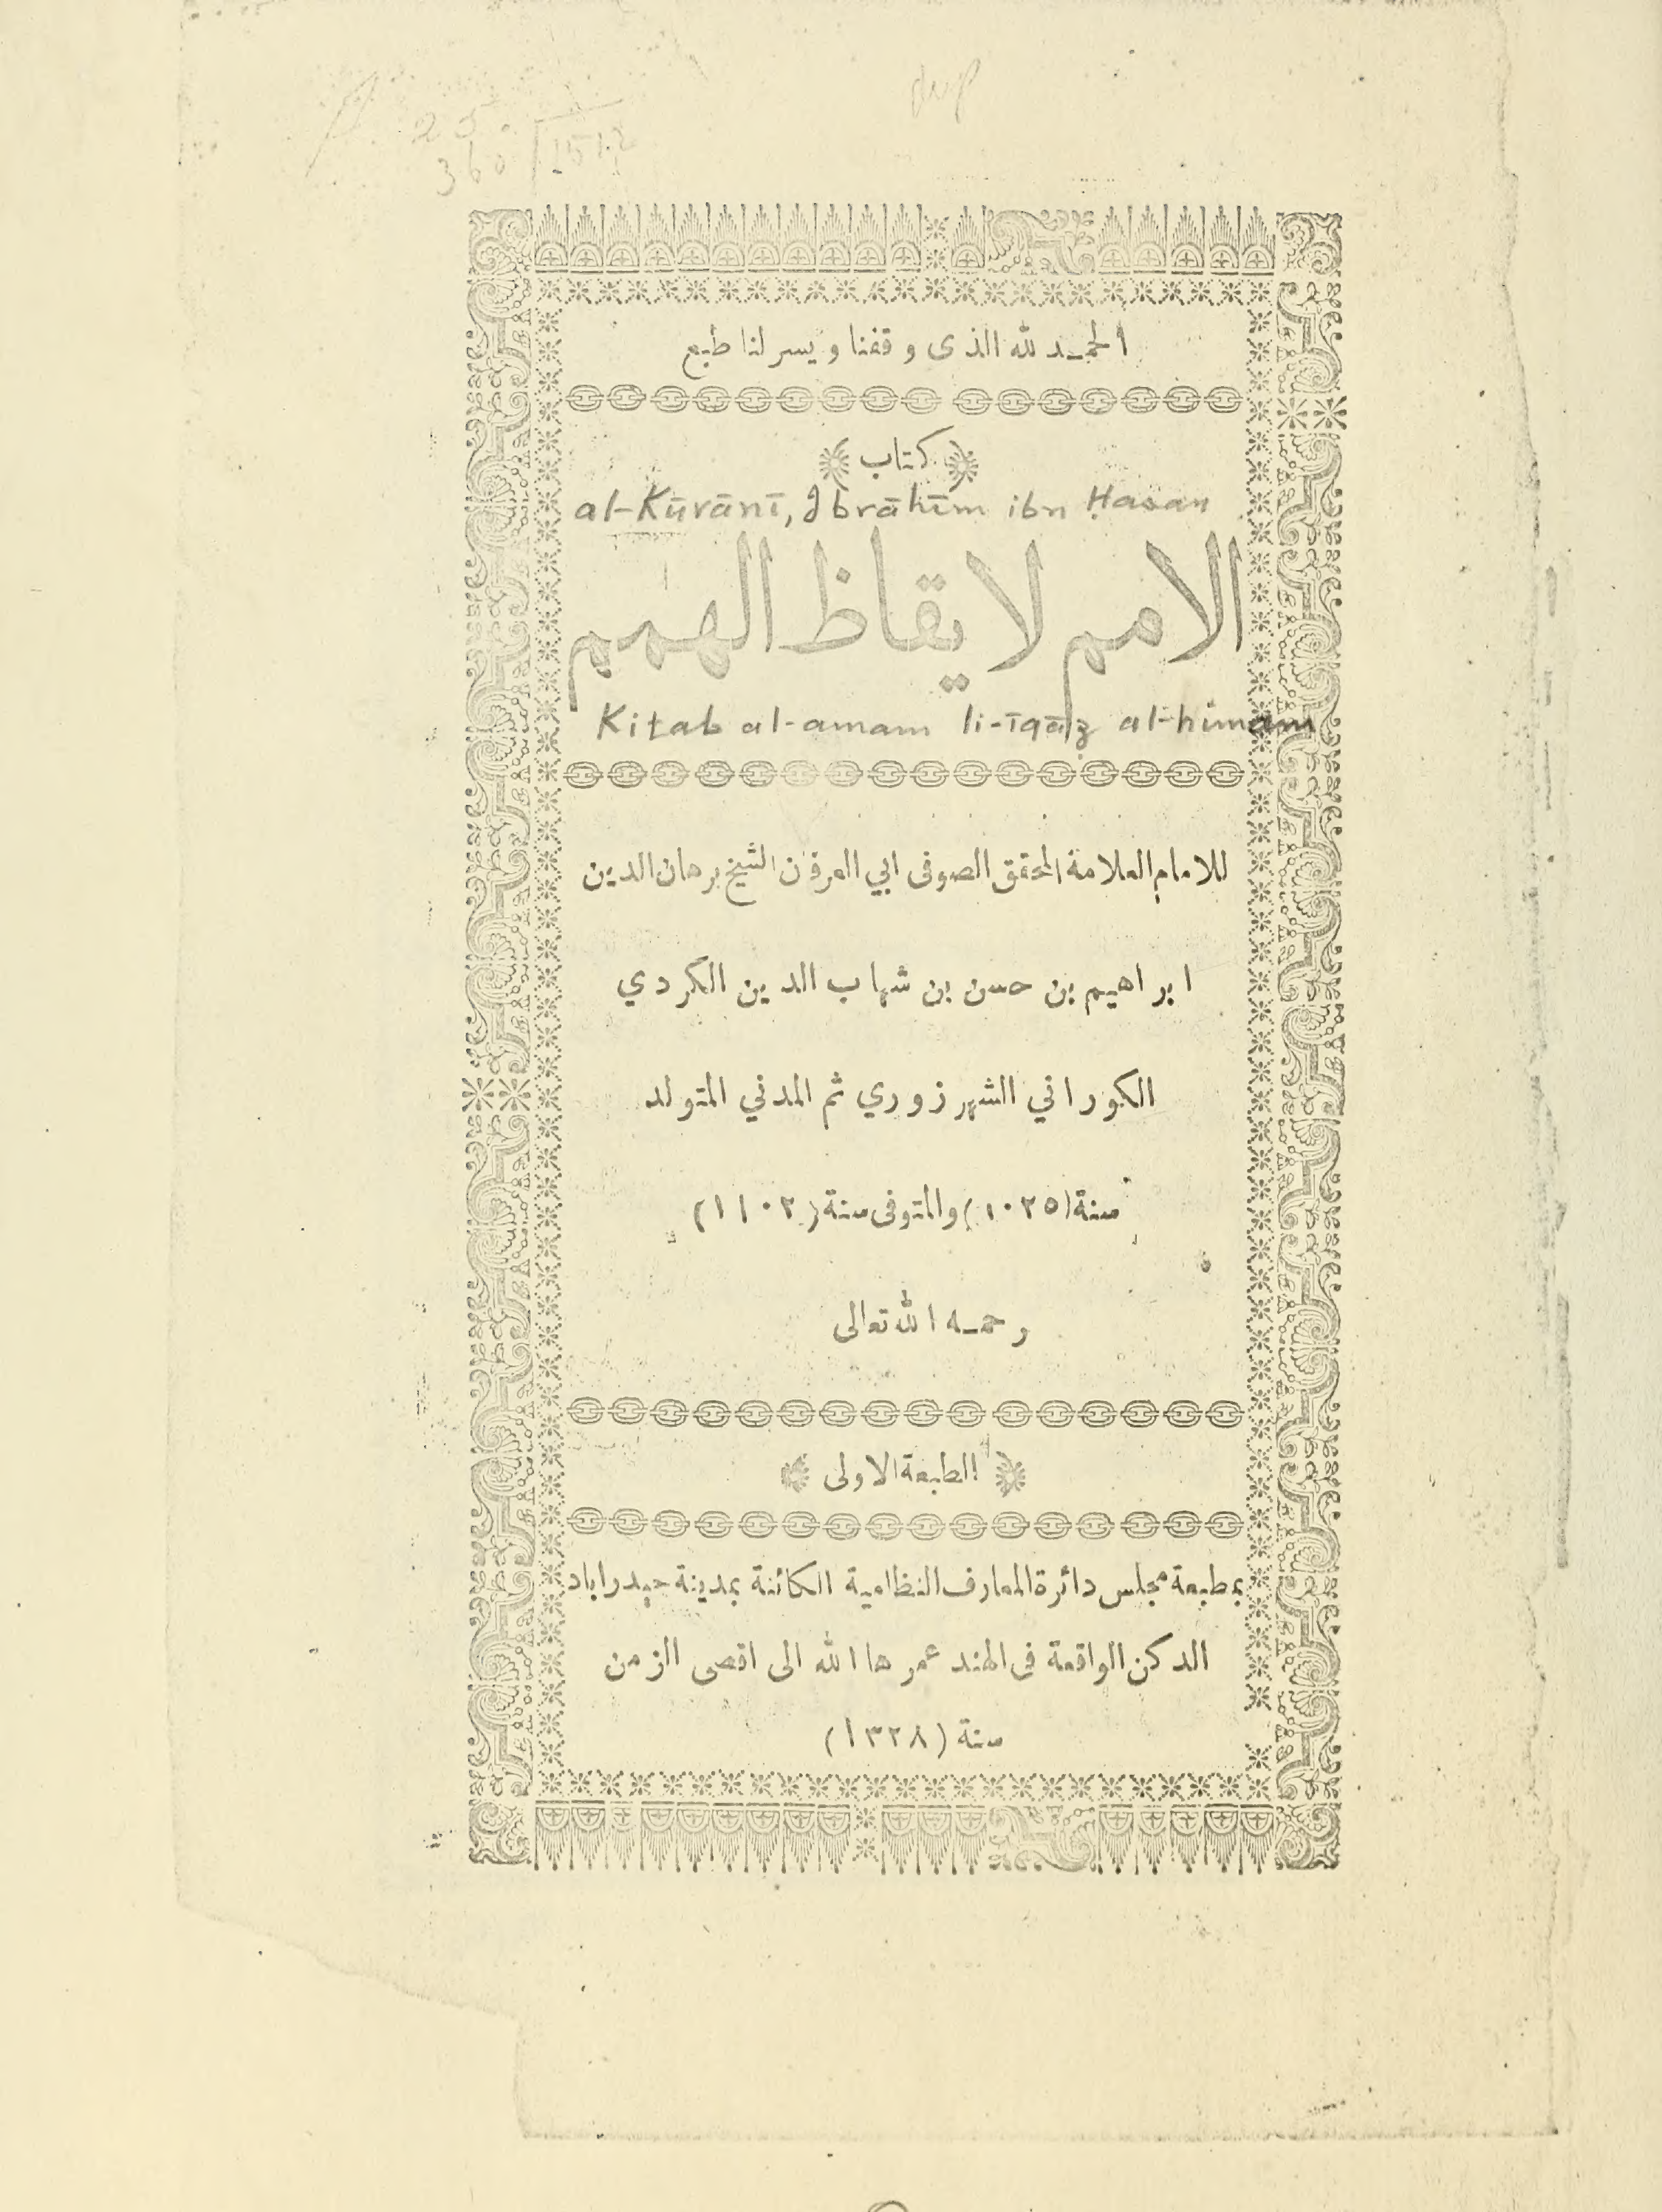 dup
25
360 1512
الحمد لله الذى وفقنا ويسر لنا طبع
كتاب
al-Kūrānī, Ibrāhīm ibn Ḥasan
الامم لايقاظ الهمم
Kitab al-amam li-īqāẓ al-himam
للامام العلامة المحقق الصوفى ابي العرفان الشيخ برهان الدين
ابراهيم بن حسن بن شهاب الدين الكردي
الكوراني الشهرزوري ثم المدني المتولد
سنة (١٠٢٥) والمتوفى سنة (١١٠٢)
رحمه الله تعالى
الطبعة الاولى
بمطبعة مجلس دائرة المعارف النظامية الكائنة بمدينة حيدراباد
الدكن الواقعة فى الهند عمرها الله الى اقصى الزمن
سنة (١٣٢٨)